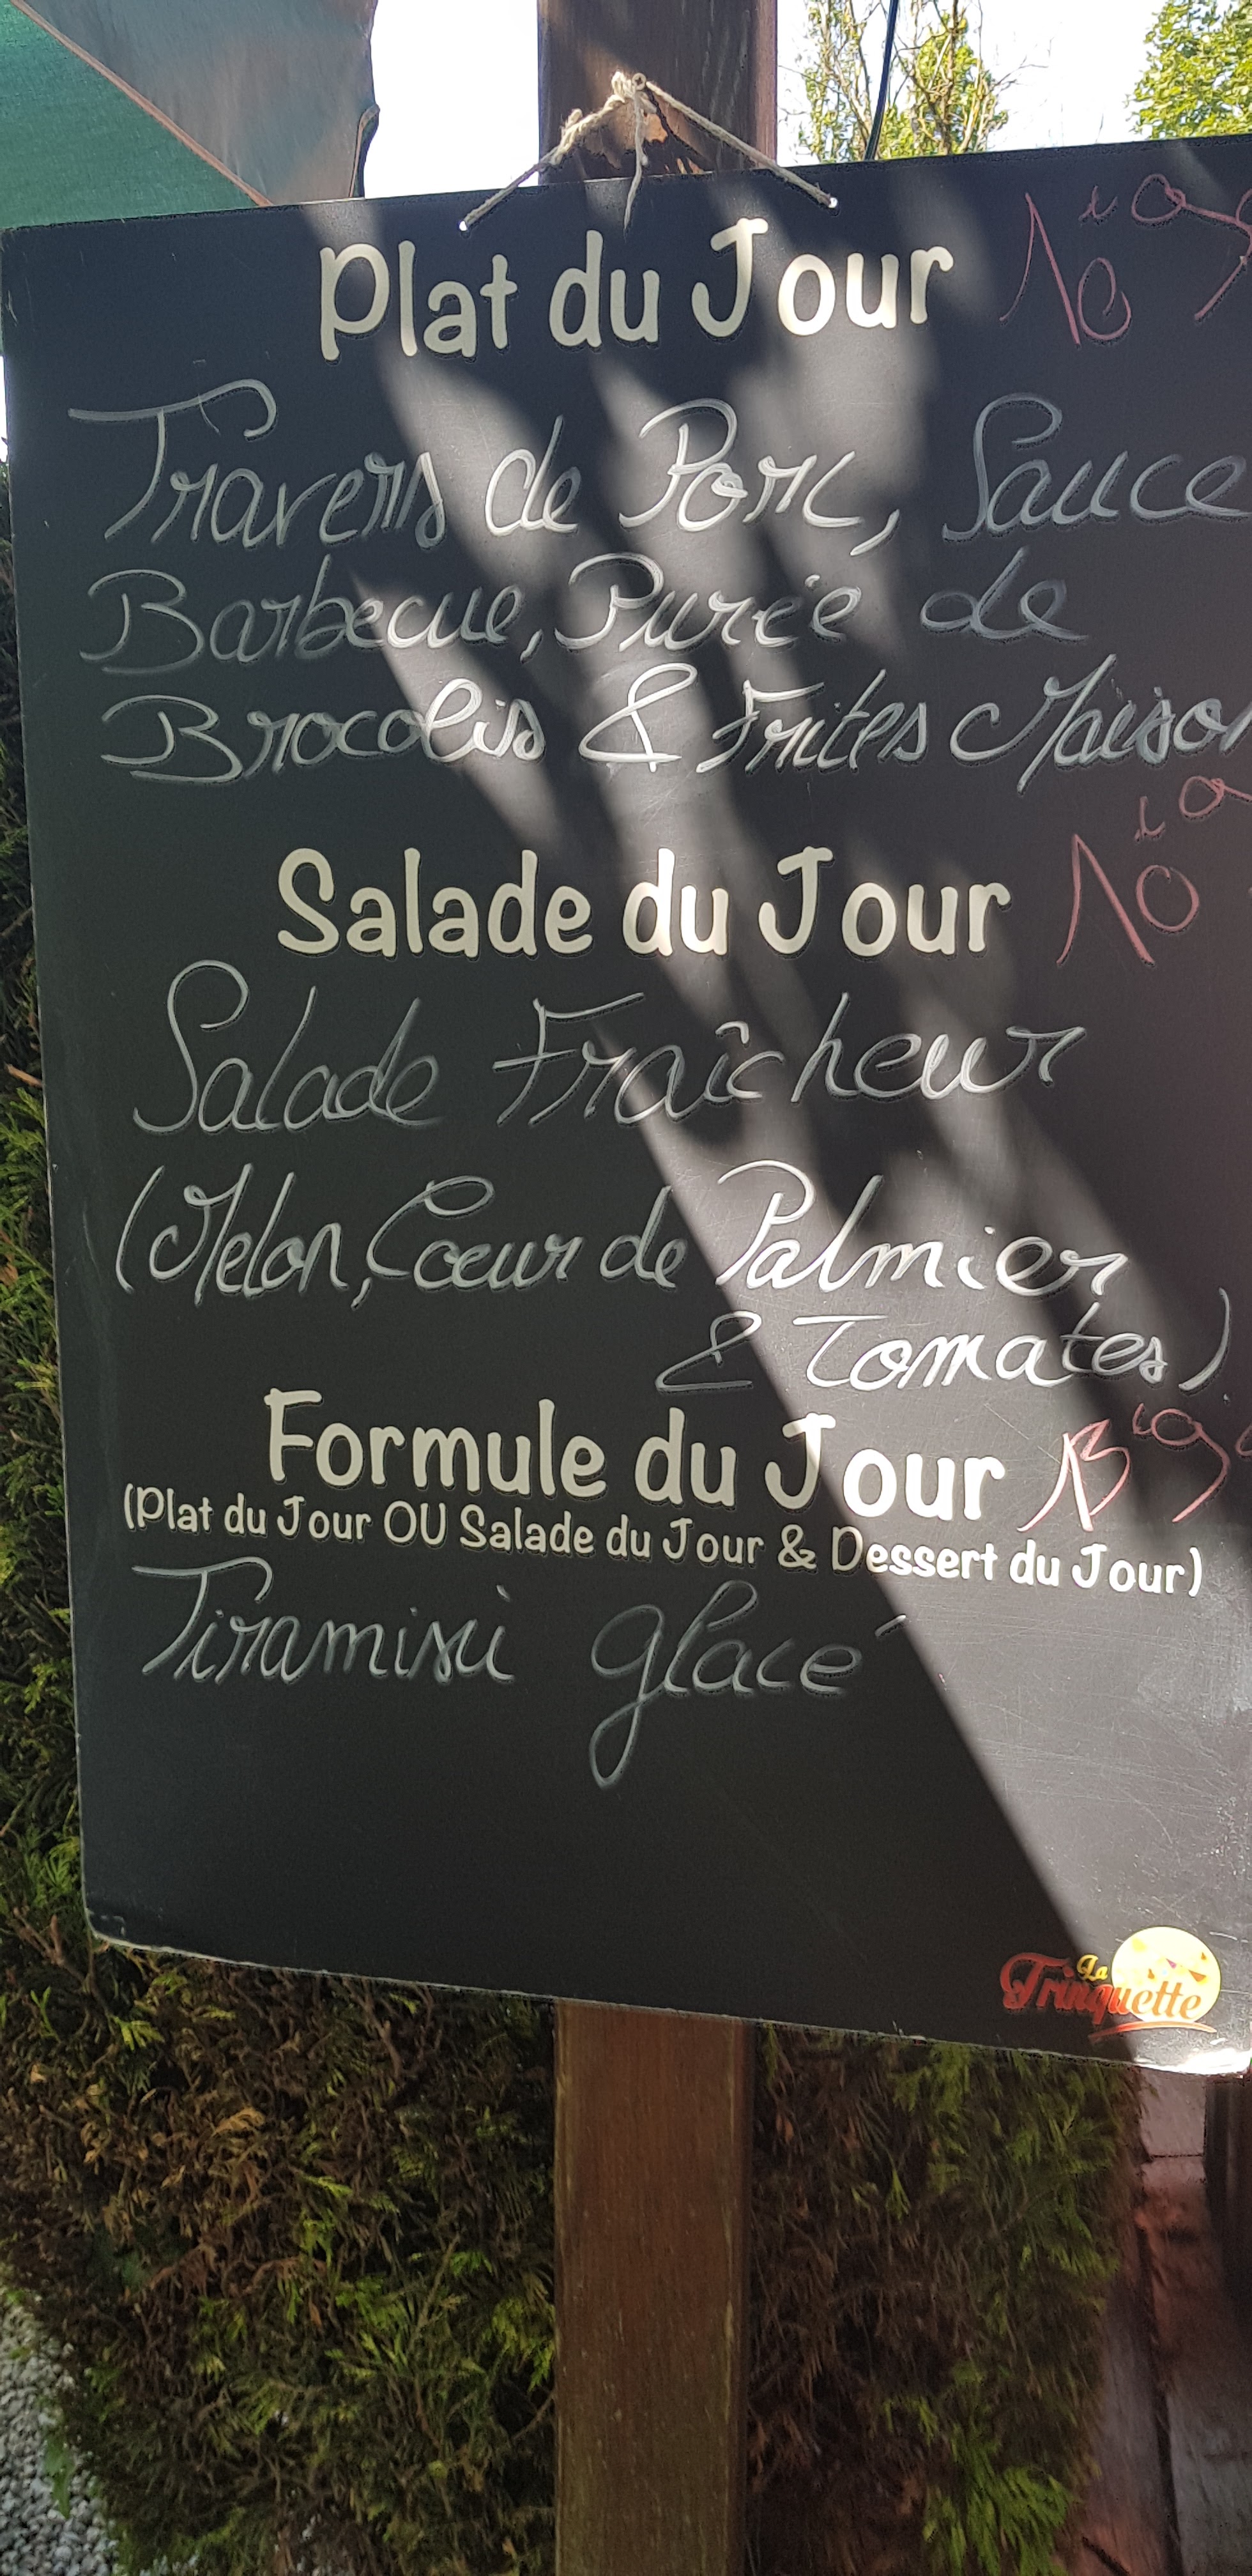 Plat du Jour
Travers de Porc, Sauce
Barbecue, Purée de
Brocolis & Frites Maison
Salade du Jour 10
Salade Fraîcheur
(Melon, Cœur de Palmier
& Tomates)
Formule du Jour
(Plat du Jour OU Salade du Jour & Dessert du Jour)
Tiramisù glacé
La Trinquette